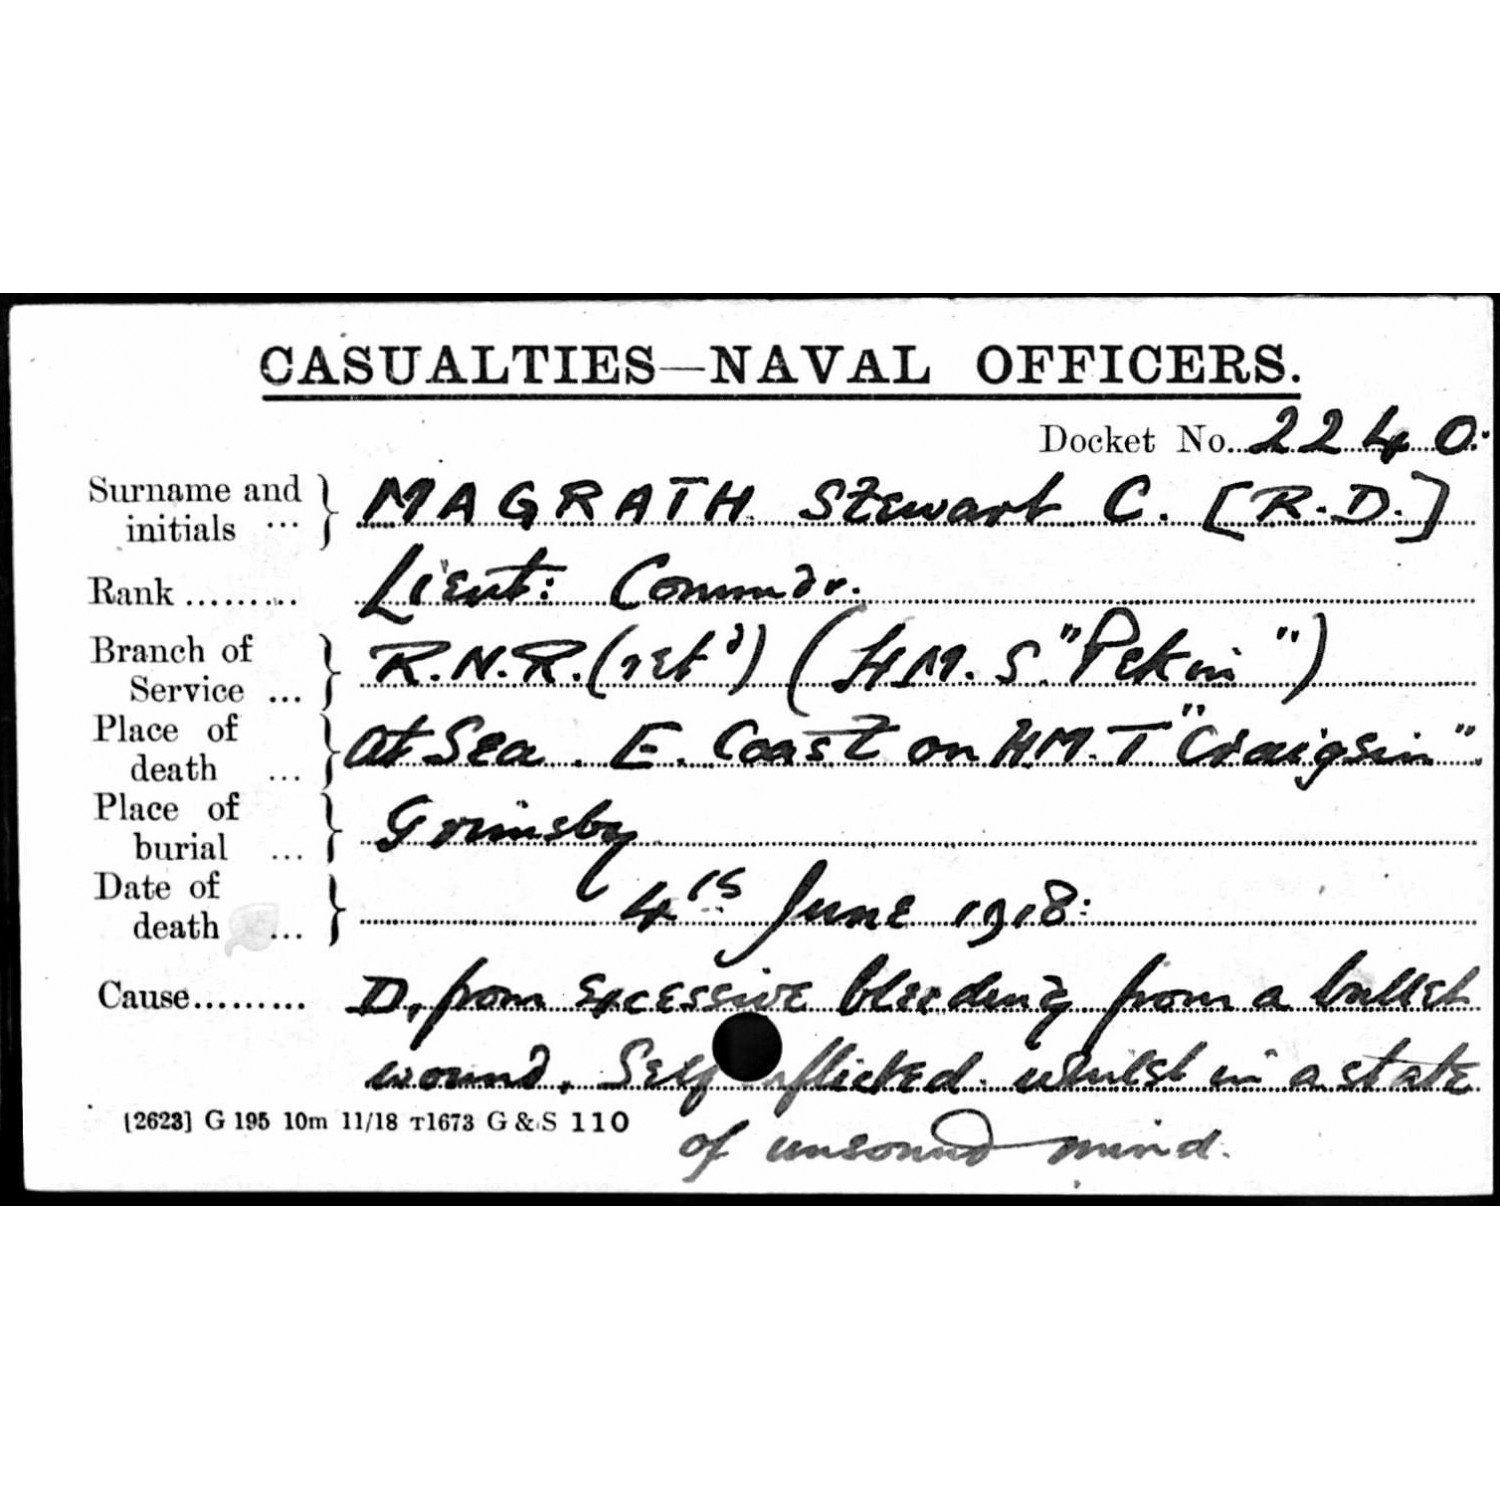 CASUALTIES—NAVAL OFFICERS.
Docket No. 2240.
Surname and initials ... } MAGRATH Stewart C. [R.D.]
Rank ......... Lieut: Commdr.
Branch of Service ... } R.N.R. (retd) (H.M.S. "Pekin")
Place of death ... } at Sea. E. Coast on H.M.T "Craigsin".
Place of burial ... } Grimsby
Date of death ... } 4th June 1918:
Cause......... D. from excessive bleeding from a bullet
wound. Self inflicted. whilst in a state
of unsound mind.
[2623] G 195 10m 11/18 T1673 G & S 110